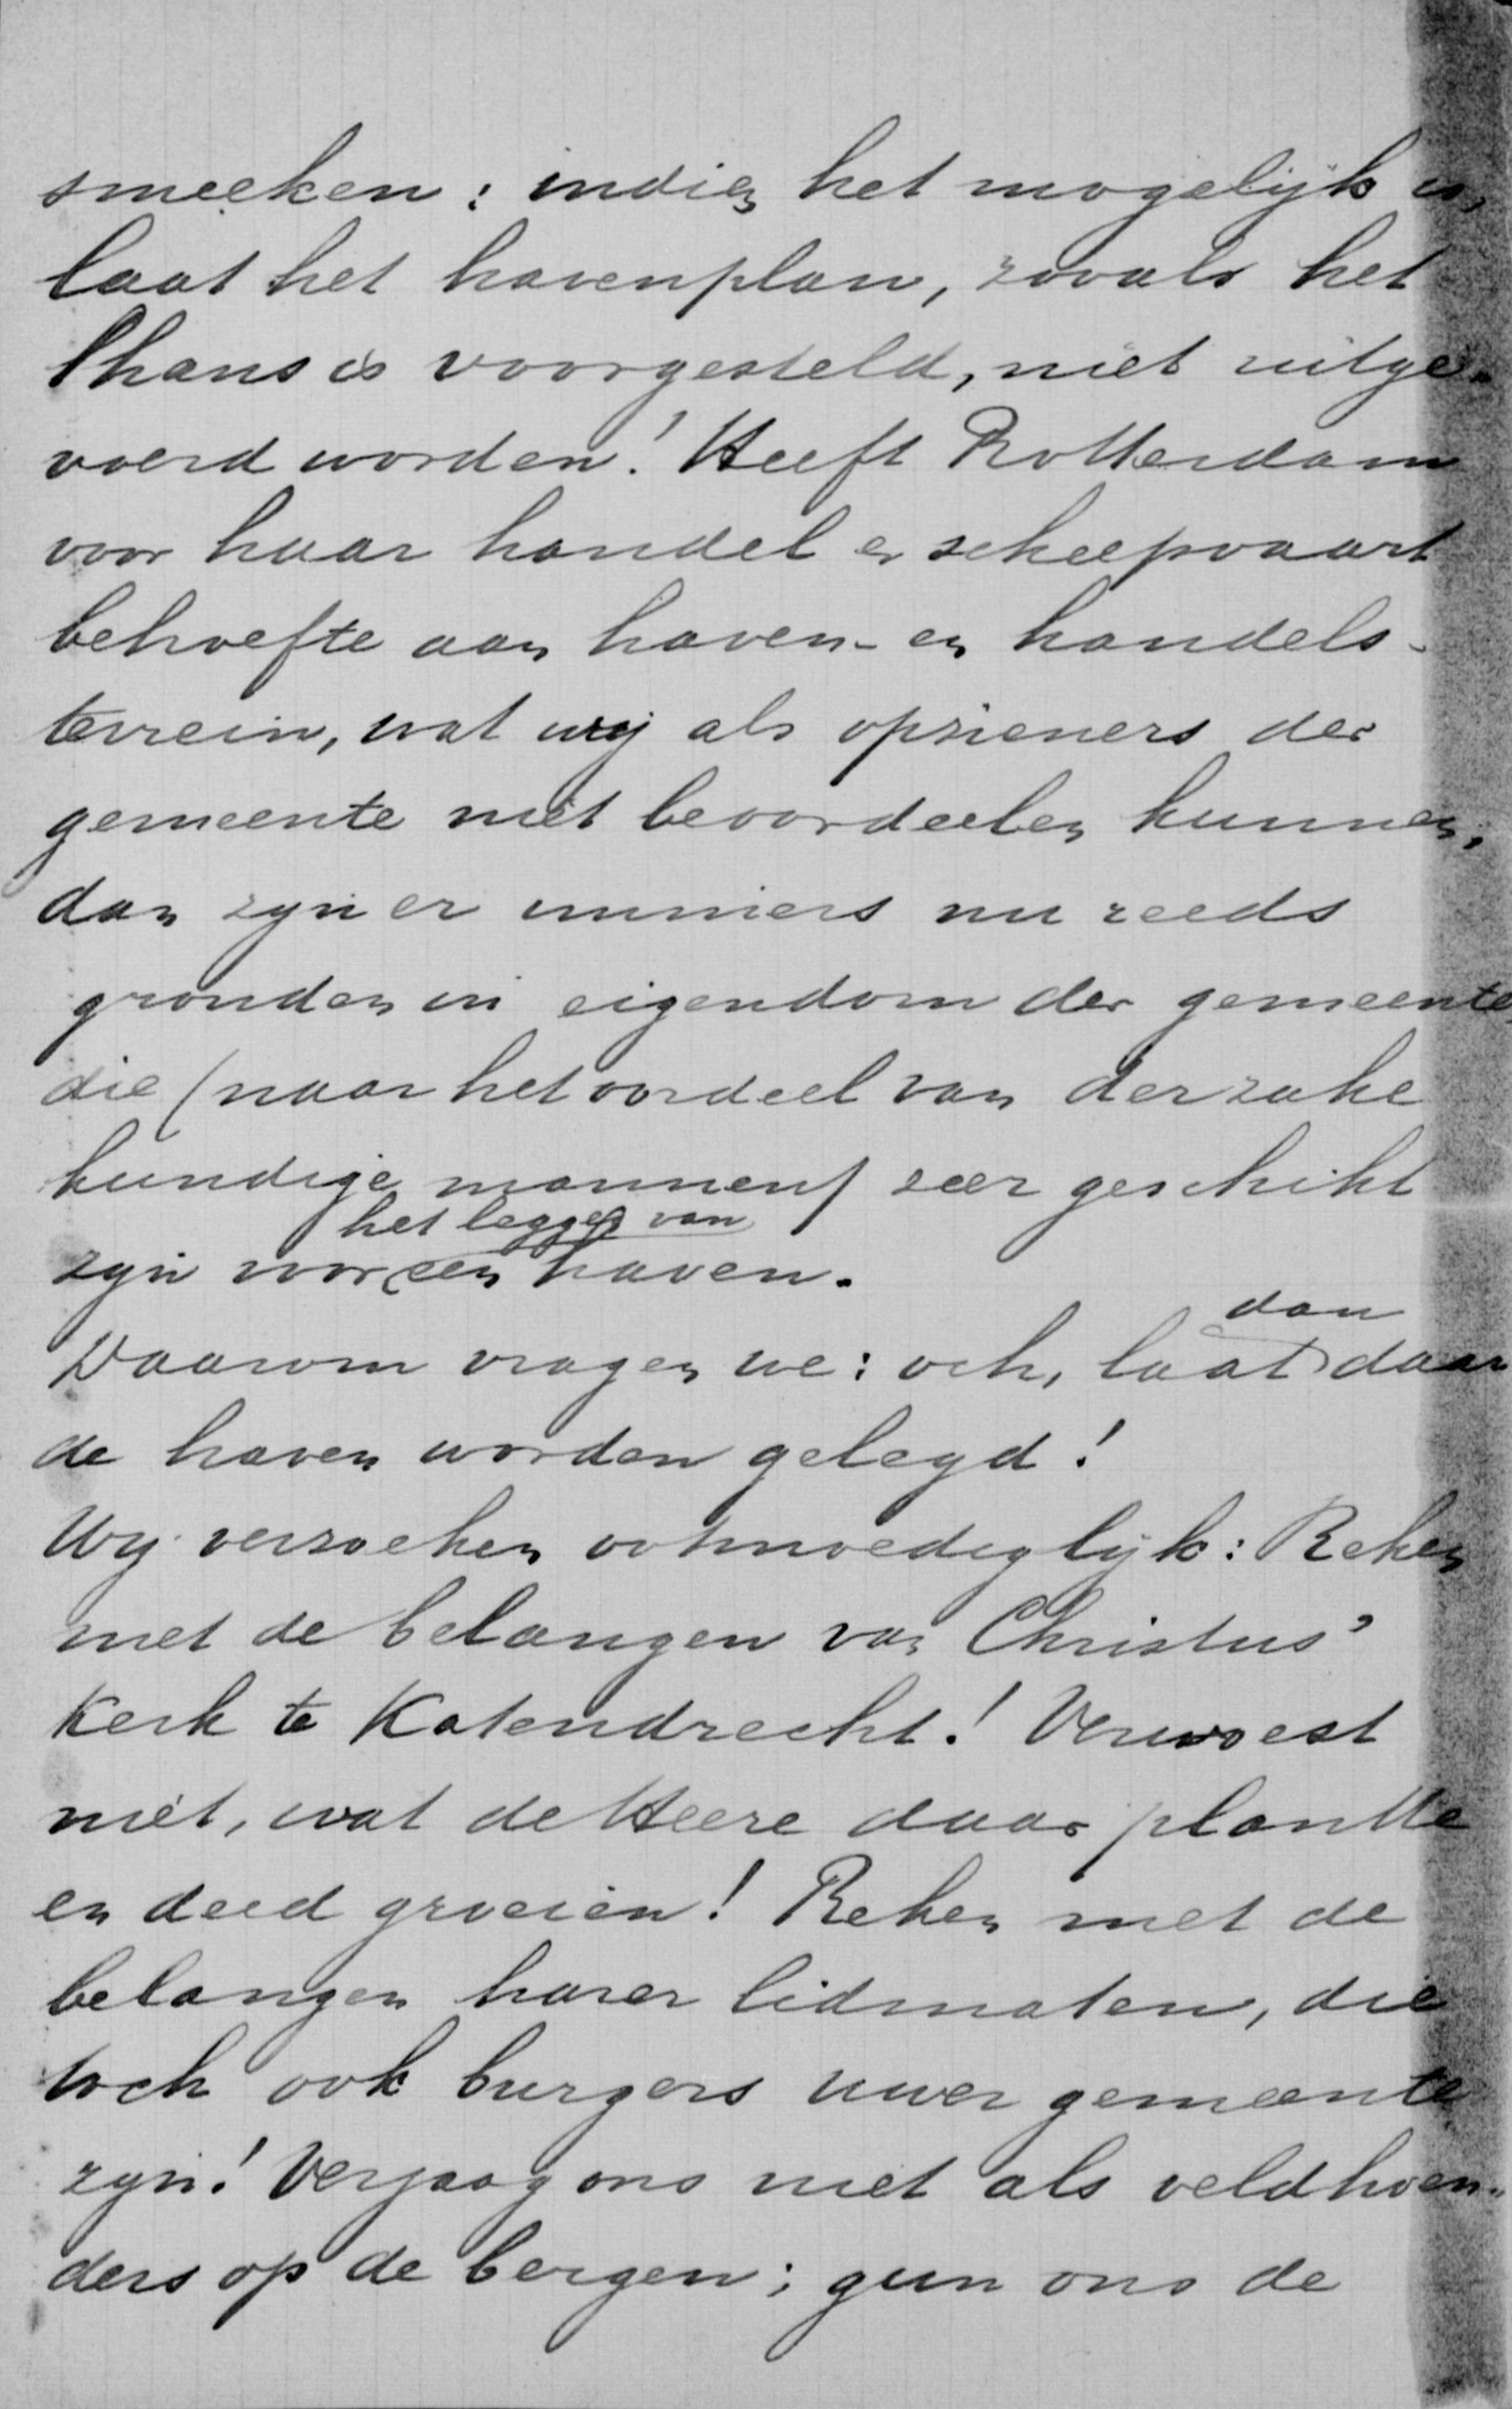 smeeken: indien het mogelijk is,
laat het havenplan, zooals het
thans is voorgesteld, niet uitge-
voerd worden! Heeft Rotterdam
voor haar handel en scheepvaart
behoefte aan haven- en handels-
terrein, wat wij als opzieners der
gemeente niet beoordeelen kunnen,
dan zijn er immers nu reeds
gronden in eigendom der gemeente,
die (naar het oordeel van der zake
kundige mannen) zeer geschikt
het leggen van
zijn voor een haven.
dan
Daarom vragen we: och, laat daar
de haven worden gelegd!
Wij verzoeken ootmoediglijk: Reken
met de belangen van Christus'
Kerk te Katendrecht! Verwoest
niet, wat de Heere daar plantte
en deed groeien! Reken met de
belangen harer lidmaten, die
toch ook burgers uwer gemeente
zijn! Verjaag ons niet als veldhoen-
ders op de bergen; gun ons de